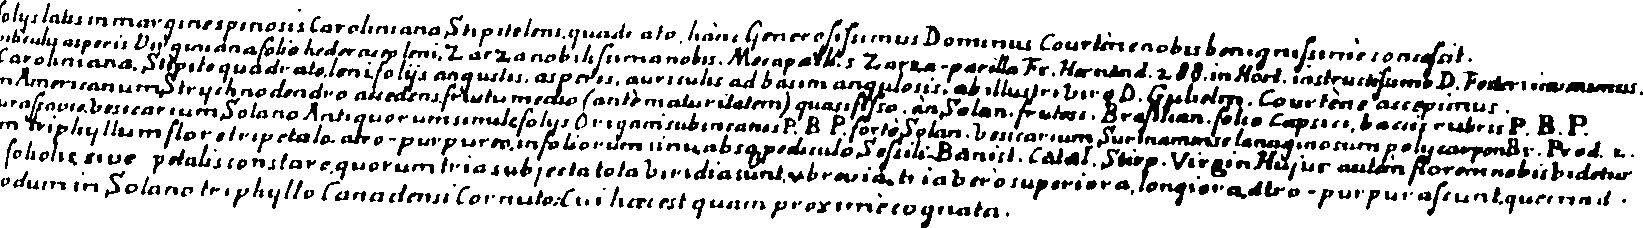 folys latis in margine spinosis Caroliniana, Stipite leni, quadrato, hanc Generosissimus Dominus Courtène nobis benignissimè concessit.
auriculis asperis Virginiana folio hederaceo leni, Zarza nobilissima nobis. Mecapatli, s Zarza-parilla Fr. Hernand. 288. in Hort. instructissimo D.
Caroliniana, Stipite quadrato, leni, folijs angustis, asperis, auriculis ad basim angulosis, ab illustri viro D. Gulielm. Courtène accepimus.
m Americanum, Strychnodendro accedens, fructu medio (antè maturitatem) quasi fisso. an, Solan. frutesc. Brasilian. folio Capsici, baccis rubris P. B. P.
vesicarium, Solano Antiquorum simile, folys Origani subincanis P. B. P. fortè, Solan. vesicarium, Surinamense lanuginosum polycarpon Br. Prod. 2.
m triphyllum flore tripetalo, atro-purpureo, in foliorum sinu, absq. pediculo, Sessili. Banist. Catal. Stirp. Virgin Hujus autem florem nobis videtur
foliolis, sive petalis constare, quorum tria subjecta tota viridia sunt, & brevia, tria verò superiora, longiora, atro-purpurascunt, quemad.
odum in Solano triphyllo Canadensi Cornuto: Cui hæc est quam proximè cognata.